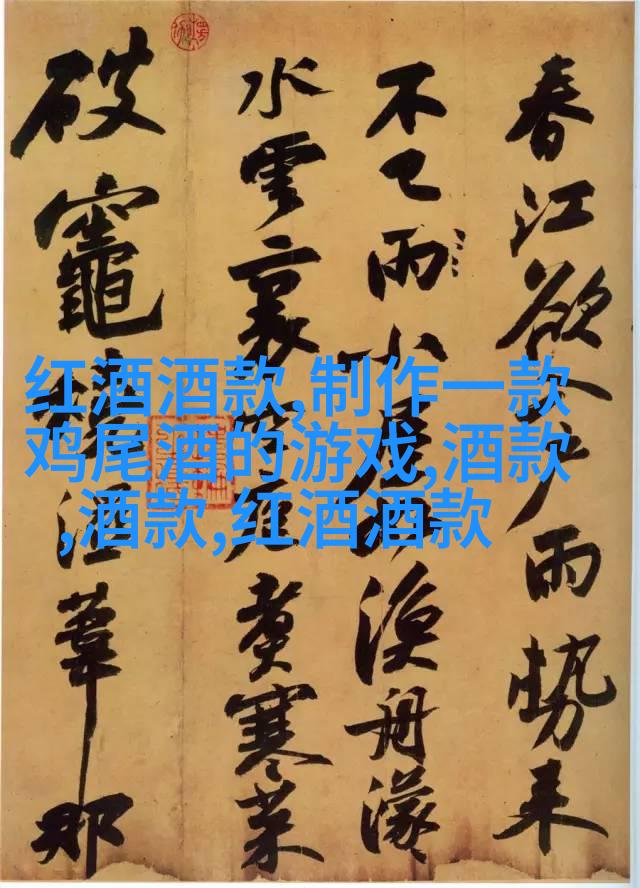 春江欲入戶雨勢来
不已雨小屋如漁舟濛
水雲裏空庖煮寒菜
破竈燒濕葦那
红酒酒款,制作一款
鸡尾酒的游戏,酒款
,酒款,红酒酒款